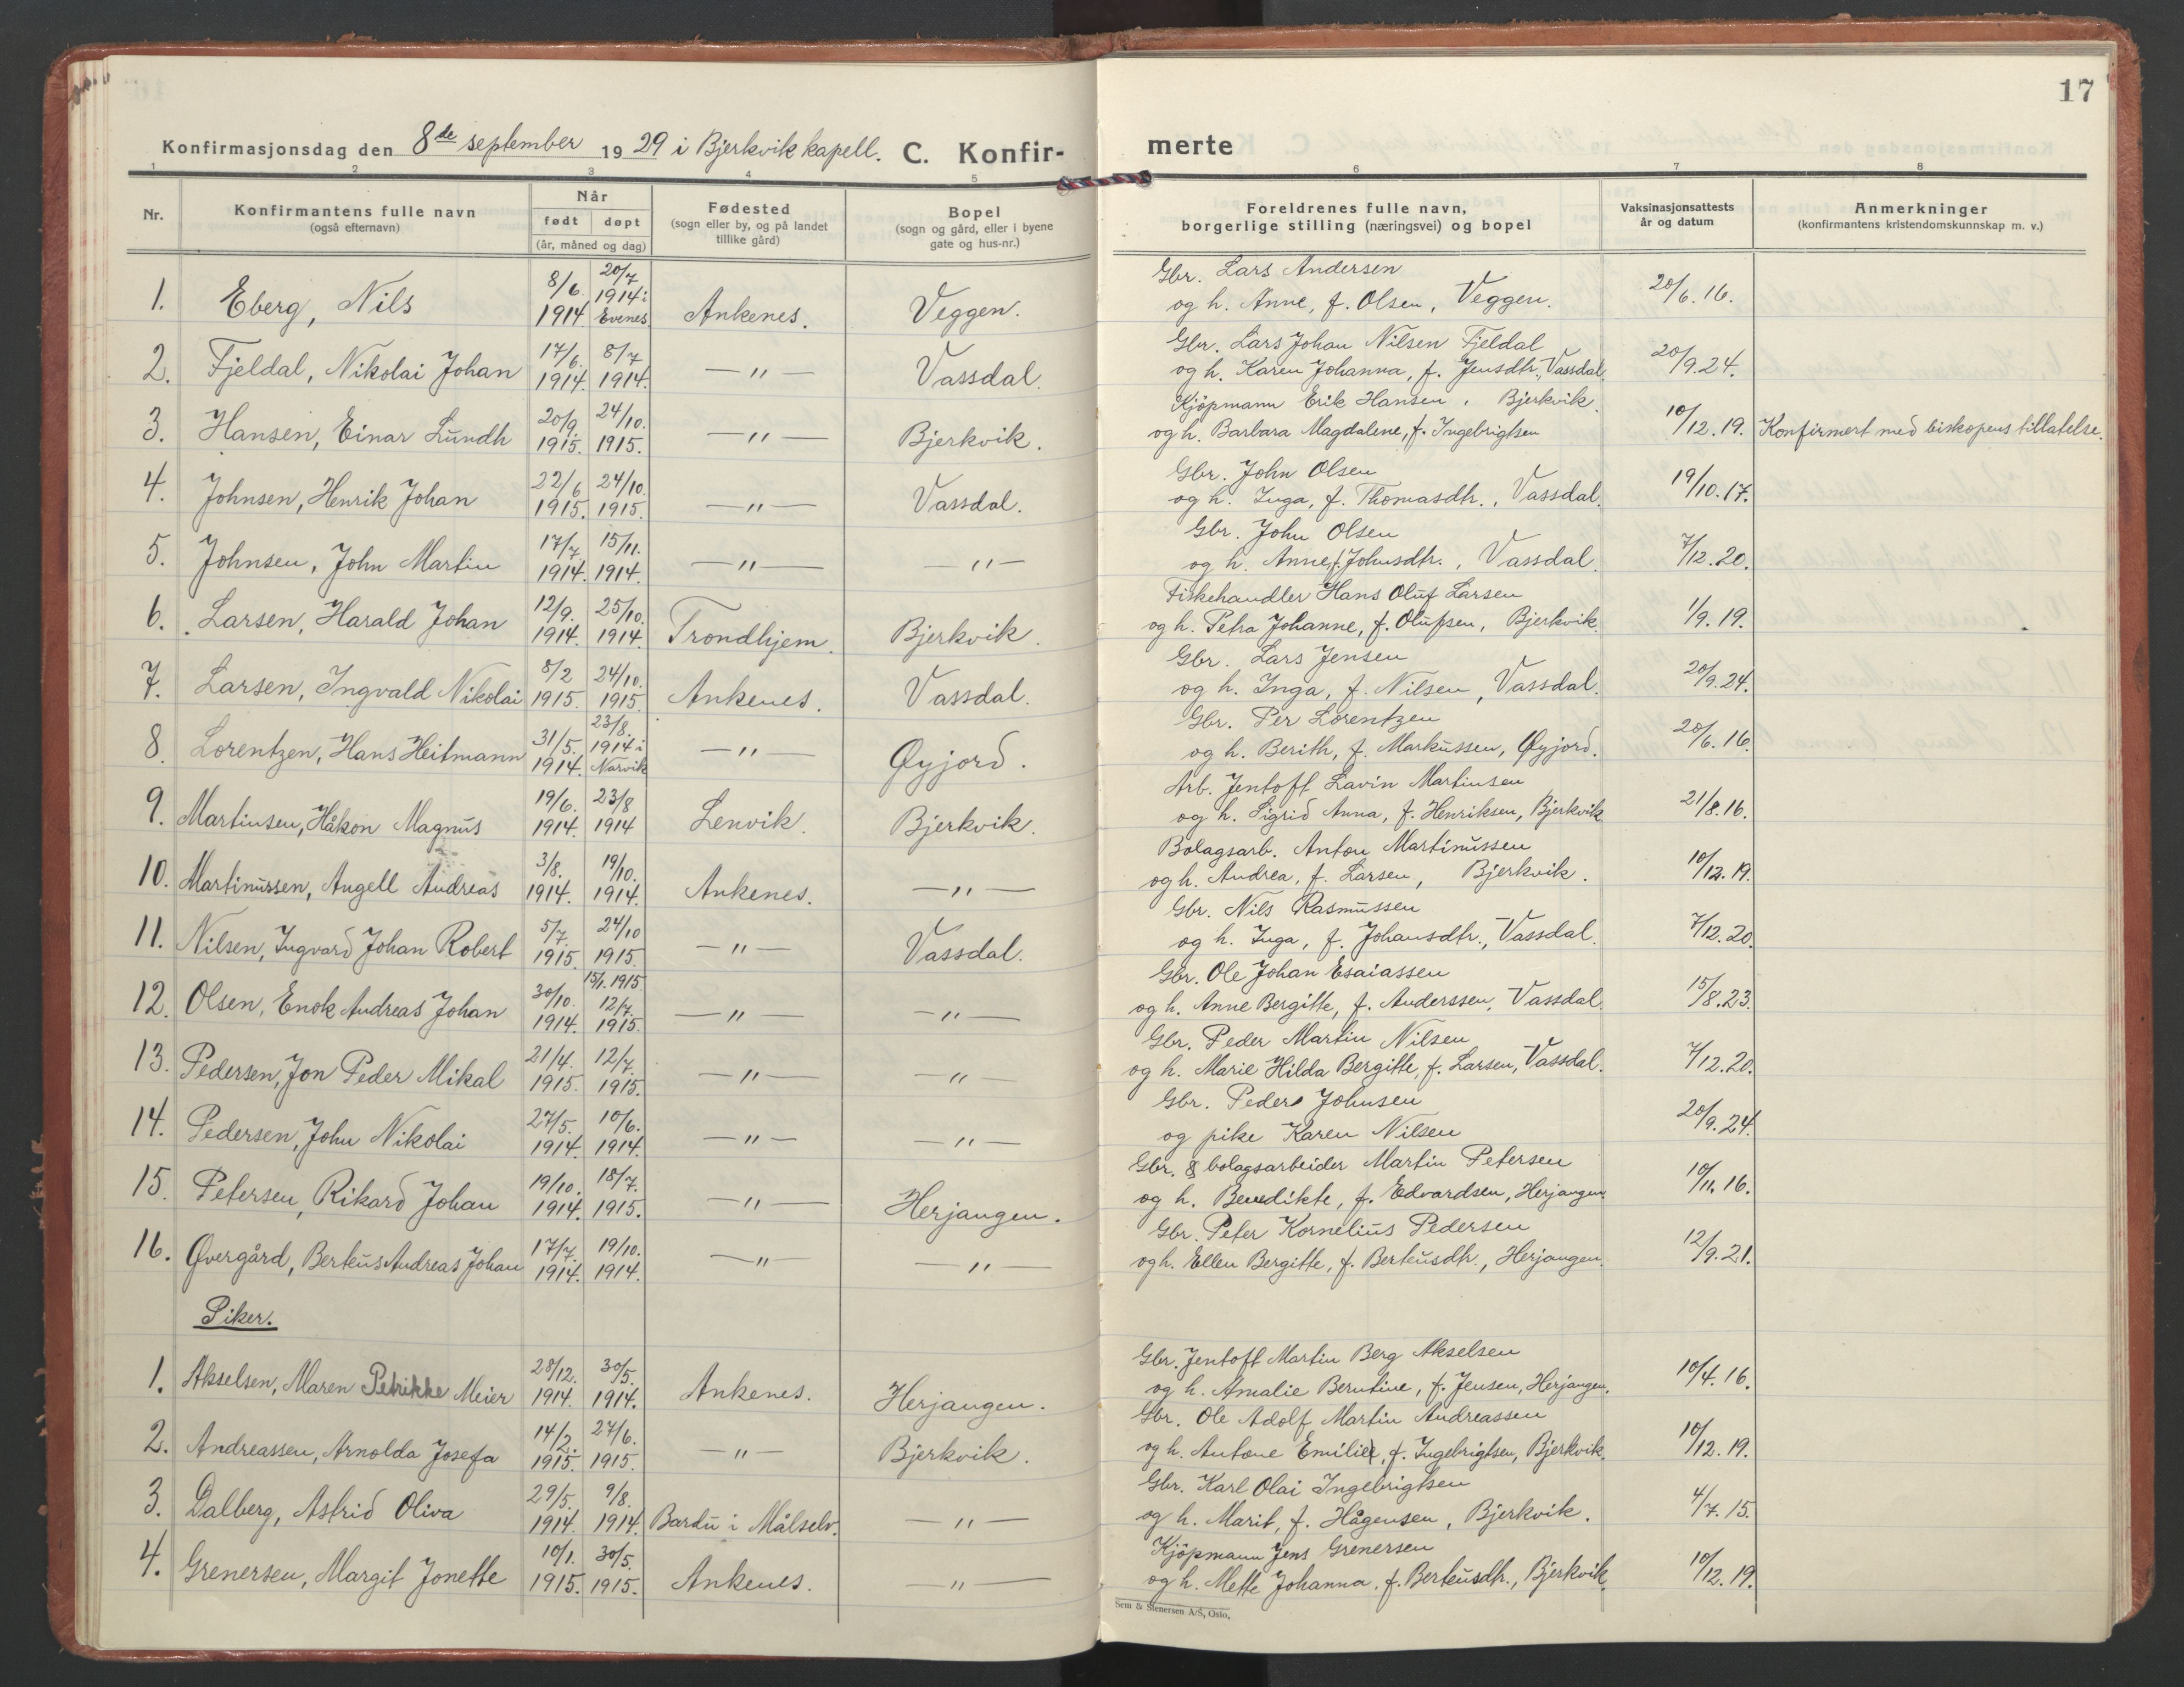 17
Konfirmasjonsdag den 8de september 1929 i Bjerkvik kapell. C. Konfirmerte
1 2 3 4 5 6 7 8
Nr.
Konfirmantens fulle navn
(også efternavn)
Når
født døpt
(år, måned og dag)
Fødested
(sogn eller by, og på landet
tillike gård)
Bopel
(sogn og gård, eller i byene
gate og hus-nr.)
Foreldrenes fulle navn,
borgerlige stilling (næringsvei) og bopel
Vaksinasjonsattests
år og datum
Anmerkninger
(konfirmantens kristendomskunnskap m. v.)
1. Eberg, Nils 8/6 1914 20/7 1914 i Evenes Ankenes. Veggen. Gbr. Lars Andersen
og h. Anne, f. Olsen, Veggen. 20/6.16.
2. Fjeldal, Nikolai Johan 17/6 1914. 8/7 1914. —"— Vassdal. Gbr. Lars Johan Nilsen Fjeldal
og h. Karen Johanna, f. Jensdtr., Vassdal. 20/9.24.
3. Hansen, Einar Lundh 20/9 1915. 24/10. 1915. —"— Bjerkvik. Kjøpmann Erik Hansen, Bjerkvik.
og h. Barbara Magdalene, f. Ingebrigtsen 10/12.19. Konfirmert med biskopens tillatelse.
4. Johnsen, Henrik Johan 22/6 1915. 24/10. 1915. —"— Vassdal. Gbr. John Olsen
og h. Inga, f. Thomasdtr., Vassdal. 19/10.17.
5. Johnsen, John Martin 17/7. 1914. 15/11. 1914. —"— —"— Gbr. John Olsen
og h. Anne, f. Johnsdtr., Vassdal. 7/12.20.
6. Larsen, Harald Johan 12/9. 1914. 25/10. 1914. Trondhjem. Bjerkvik. Fiskehandler Hans Oluf Larsen
og h. Petra Johanne, f. Olufsen, Bjerkvik. 1/9.19.
7. Larsen, Ingvald Nikolai 8/2 1915. 24/10. 1915. Ankenes. Vassdal. Gbr. Lars Jensen
og h. Inga, f. Nilsen, Vassdal. 20/9.24.
8. Lorentzen, Hans Heitmann 31/5. 1914. 23/8. 1914 i Narvik —"— Øyjord. Gbr. Per Lorentzen
og h. Berith, f. Markussen, Øyjord. 20/6.16.
9. Martinsen, Håkon Magnus 19/6. 1914. 23/8 1914 Lenvik. Bjerkvik. Arb. Jentoft Lavin Martinsen
og h. Sigrid Anna, f. Henriksen, Bjerkvik 21/8.16.
10. Martinussen, Angell Andreas 3/8. 1914. 19/10. 1914. Ankenes. —"— Bolagsarb. Anton Martinussen
og h. Andrea, f. Larsen, Bjerkvik. 10/12.19.
11. Nilsen, Ingvard Johan Robert 5/7. 1915. 24/10 1915. —"— Vassdal. Gbr. Nils Rasmussen
og h. Inga, f. Johansdtr., Vassdal. 7/12.20.
12. Olsen, Enok Andreas Johan 30/10. 1914. 15/1.1915 12/7. 1915. —"— —"— Gbr. Ole Johan Esaiassen
og h. Anne Bergitte, f. Anderssen, Vassdal. 15/8.23.
13. Pedersen, Jon Peder Mikal 21/4. 1915. 12/7. 1915. —"— —"— Gbr. Peder Martin Nilsen
og h. Marie Hilda Bergitte, f. Larsen, Vassdal. 7/12.20.
14. Pedersen, John Nikolai 27/5. 1914. 10/6. 1914. —"— —"— Gbr. Peder Johnsen
og pike Karen Nilsen 20/9.24.
15. Petersen, Rikard Johan 19/10. 1914. 18/7. 1915. —"— Herjangen. Gbr. & bolagsarbeider Martin Petersen
og h. Benedikte, f. Edvardsen, Herjangen. 10/11.16.
16. Øvergård, Berteus Andreas Johan 17/7. 1914. 19/10. 1914. —"— —"— Gbr. Peter Kornelius Pedersen
og h. Ellen Bergitte, f. Berteusdtr., Herjangen. 12/9.21.
Piker.
1. Akselsen, Maren Petrikke Meier 28/12. 1914. 30/5. 1914. Ankenes. Herjangen. Gbr. Jentoft Martin Berg Akselsen
og h. Amalie Berntine, f. Jensen, Herjangen. 10/4.16.
2. Andreassen, Arnolda Josefa 14/2. 1915. 27/6. 1915. —"— Bjerkvik. Gbr. Ole Adolf Martin Andreassen
og h. Antone Emilie, f. Ingebrigtsen, Bjerkvik. 10/12.19.
3. Dalberg, Astrid Oliva 29/5. 1914. 9/8. 1914. Bardu i Målselv. —"— Gbr. Karl Olai Ingebrigtsen
og h. Marit, f. Hågensen, Bjerkvik. 4/7.15.
4. Grenersen, Margit Jonette 10/1. 1915. 30/5. 1915. Ankenes. —"— Kjøpmann Jens Grenersen
og h. Mette Johanna, f. Berteusdtr., Bjerkvik. 10/12.19.
Sem & Stenersen A/S, Oslo.